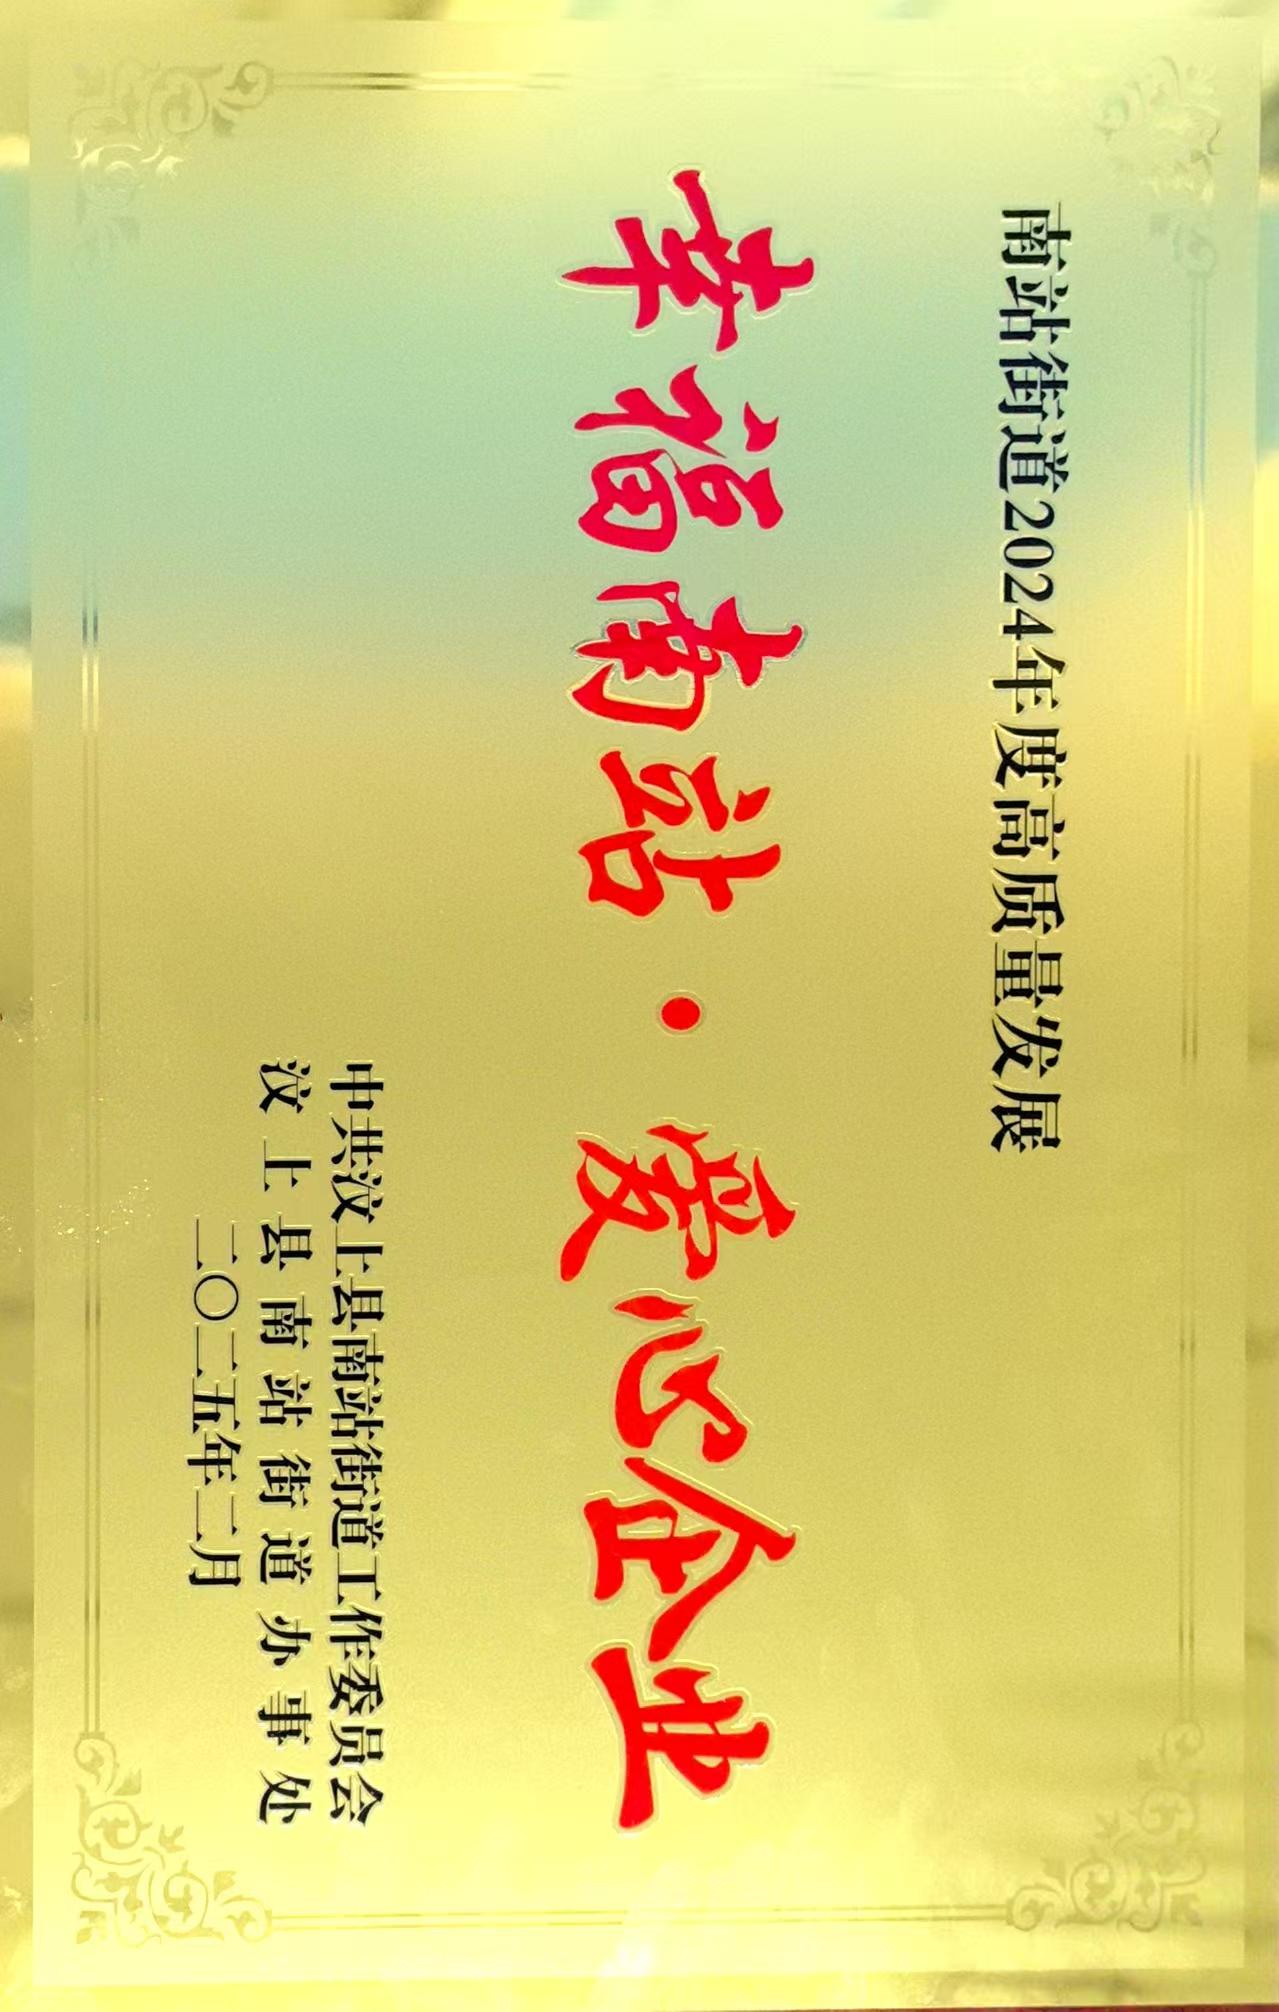 南站街道2024年度高质量发展
幸福南站·爱心企业
中共汶上县南站街道工作委员会
汶上县南站街道办事处
二〇二五年二月